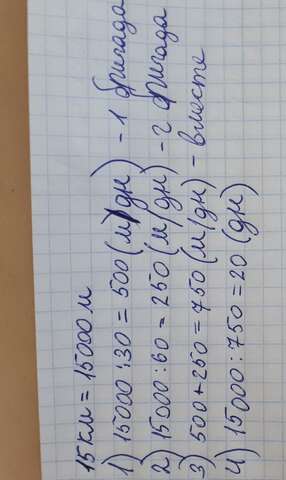 15 км = 15000 м
1) 15000 : 30 = 500 (м/дн) - 1 бригада
2) 15000 : 60 = 250 (м/дн) - 2 бригада
3) 500 + 250 = 750 (м/дн) - вместе
4) 15000 : 750 = 20 (дн)